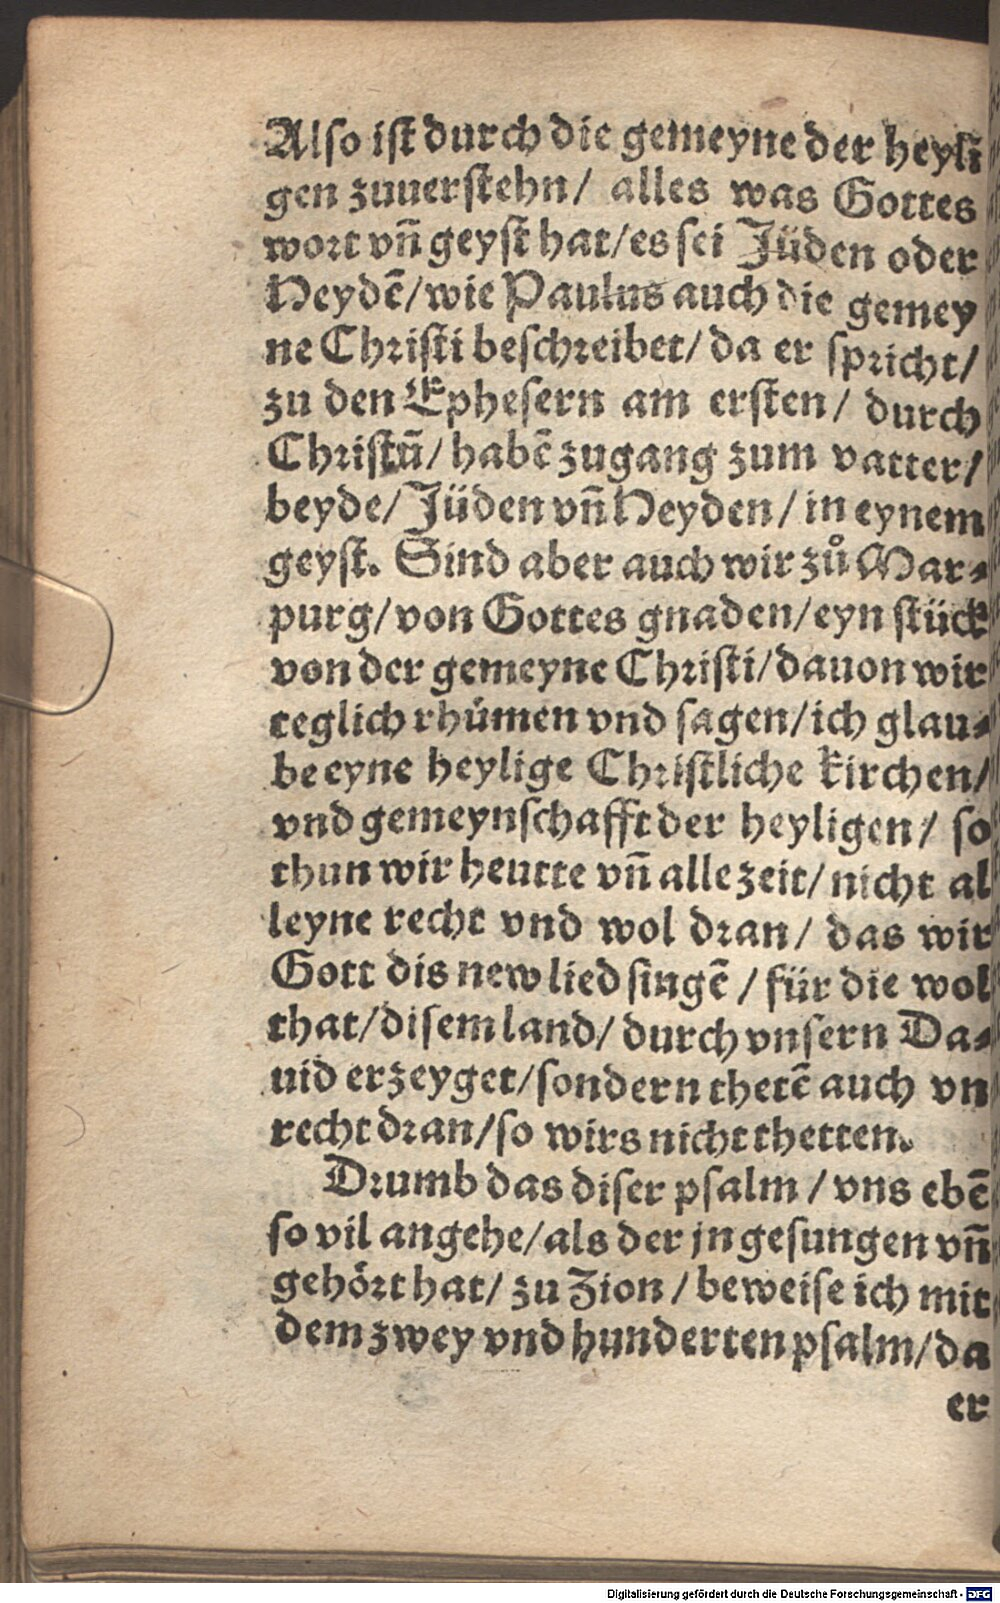 Also ist durch die gemeyne der heyli
gen zuuerstehn/ alles was Gottes
wort vñ geyst hat/es sei Jüden oder
Heydẽ/wie Paulus auch die gemey
ne Christi beschreibet/ da er spricht/
zu den Ephesern am ersten/ durch
Christũ/ habẽ zugang zum vatter/
beyde/ Jüden vñ Heyden/ in eynem
geyst. Sind aber auch wir zů Mar⸗
purg/von Gottes gnaden/eyn stück
von der gemeyne Christi/dauon wir
teglich rhůmen vnd sagen/ich glau⸗
be eyne heylige Christliche kirchen/
vnd gemeynschafft der heyligen/ so
thun wir heutte vñ alle zeit/ nicht al
leyne recht vnd wol dran/ das wir
Gott dis new lied singẽ / für die wol
that/disem land/ durch vnsern Da⸗
uid erzeyget/sondern thetẽ auch vn
recht dran/so wirs nicht thetten.
Drumb das diser psalm / vns ebẽ
so vil angehe/als der jn gesungen vñ
gehört hat/ zu Zion / beweise ich mit
dem zwey vnd hunderten psalm/da
er
Digitalisierung gefördert durch die Deutsche Forschungsgemeinschaft - DFG